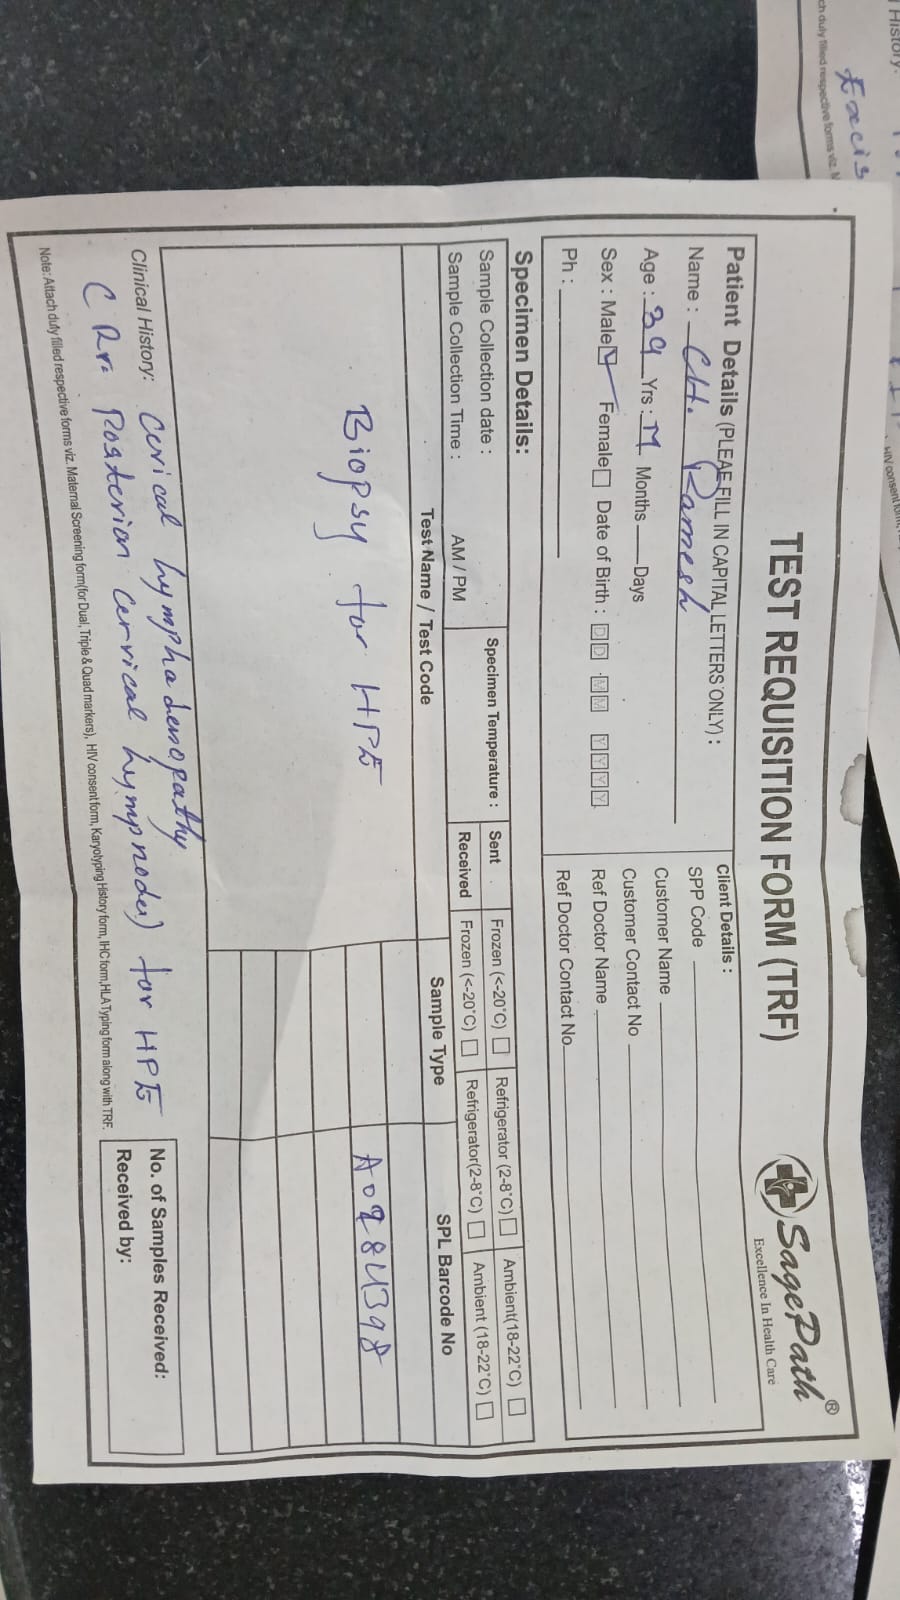 TEST REQUISITION FORM (TRF)
SagePath®
Excellence In Health Care
Patient Details (PLEAE FILL IN CAPITAL LETTERS ONLY) :
Name : CH. Ramesh
Age : 39 Yrs : M Months Days
Sex : Male Female Date of Birth : DD MM YYYY
Ph :
Client Details :
SPP Code
Customer Name
Customer Contact No
Ref Doctor Name
Ref Doctor Contact No.
Specimen Details:
Sample Collection date :
Sample Collection Time : AM / PM
Specimen Temperature :
Sent Frozen (<-20°C) Refrigerator (2-8°C) Ambient(18-22°C)
Received Frozen (<-20°C) Refrigerator(2-8°C) Ambient (18-22°C)
Test Name / Test Code Sample Type SPL Barcode No
Biopsy for HPE
Clinical History: Cervical lymphadenopathy
Posterior cervical lympnodes) for HPE
No. of Samples Received:
Received by:
Note: Attach duly filled respective forms viz. Maternal Screening form(for Dual, Triple & Quad markers), HIV consent form, Karyotyping History form, IHC form,HLA Typing form along with TRF.
History:
ch duly filled respective forms viz.
Excis
HIV consent form